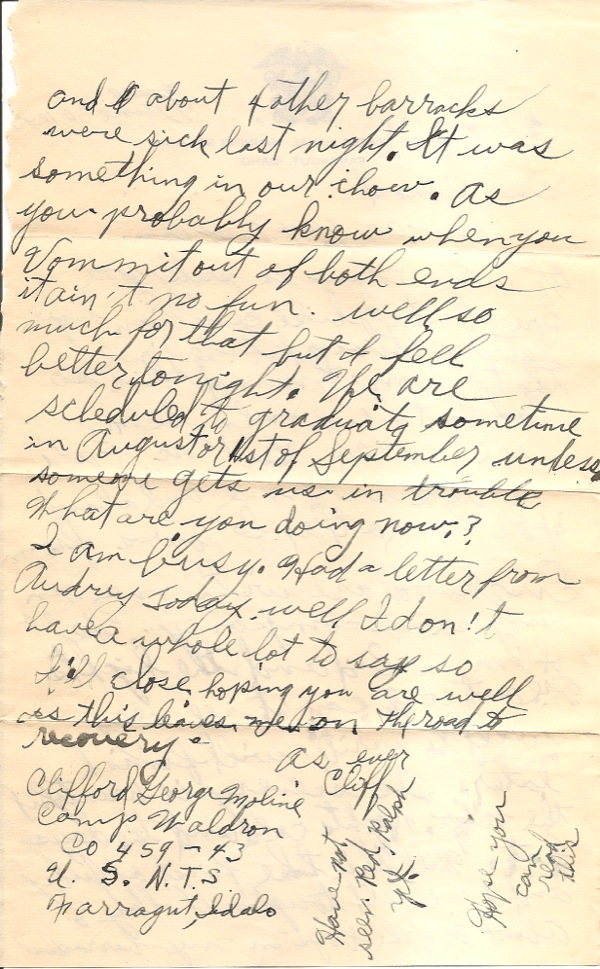 and I about 4 other barracks
were sick last night. It was
something in our chow. As
you probably know when you
Vommit out of both ends
it ain't no fun. well so
much for that but I fell
better tonight. We are
scheduled to graduate sometime
in August or 1st of September unless
someone gets us in trouble
What are you doing now?
I am busy. Had a letter from
Audrey Today. well I don't
have a whole lot to say so
I'll close hoping you are well
as this leaves me on the road to
recovery.
As ever
Cliff
Clifford George Moline
Camp Waldron
Co 459-43
U. S. N. T. S
Farragut, Idaho
Have not
seen Red, Ralph
yet.
Hope you
can
read
this